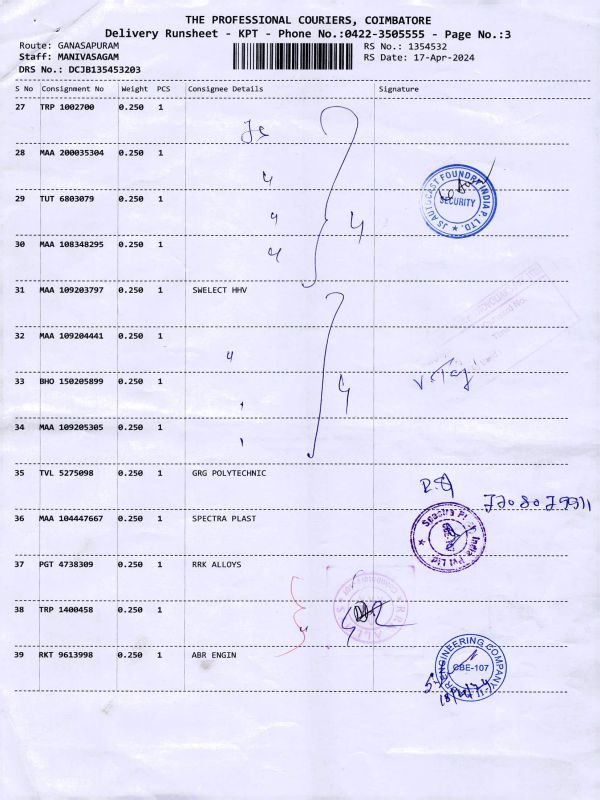 THE PROFESSIONAL COURIERS, COIMBATORE
Delivery Runsheet - KPT - Phone No.:0422-3505555 - Page No.:3
Route: GANASAPURAM
RS No.: 1354532
Staff: MANIVASAGAM
RS Date: 17-Apr-2024
DRS No.: DCJB135453203
S No Consignment No Weight PCS Consignee Details Signature
27 TRP 1002700 0.250 1
28 MAA 200035304 0.250 1
29 TUT 6803079 0.250 1
JS AUTOCAST FOUNDRY INDIA P. LTD.
SECURITY
30 MAA 108348295 0.250 1
31 MAA 109203797 0.250 1 SWELECT HHV
32 MAA 109204441 0.250 1
33 BHO 150205899 0.250 1
34 MAA 109205305 0.250 1
35 TVL 5275098 0.250 1 GRG POLYTECHNIC
36 MAA 104447667 0.250 1 SPECTRA PLAST
Spectra Plast India Pvt Ltd
37 PGT 4738309 0.250 1 RRK ALLOYS
38 TRP 1400458 0.250 1
39 RKT 9613998 0.250 1 ABR ENGIN
ENGINEERING COMPANY
CBE-107